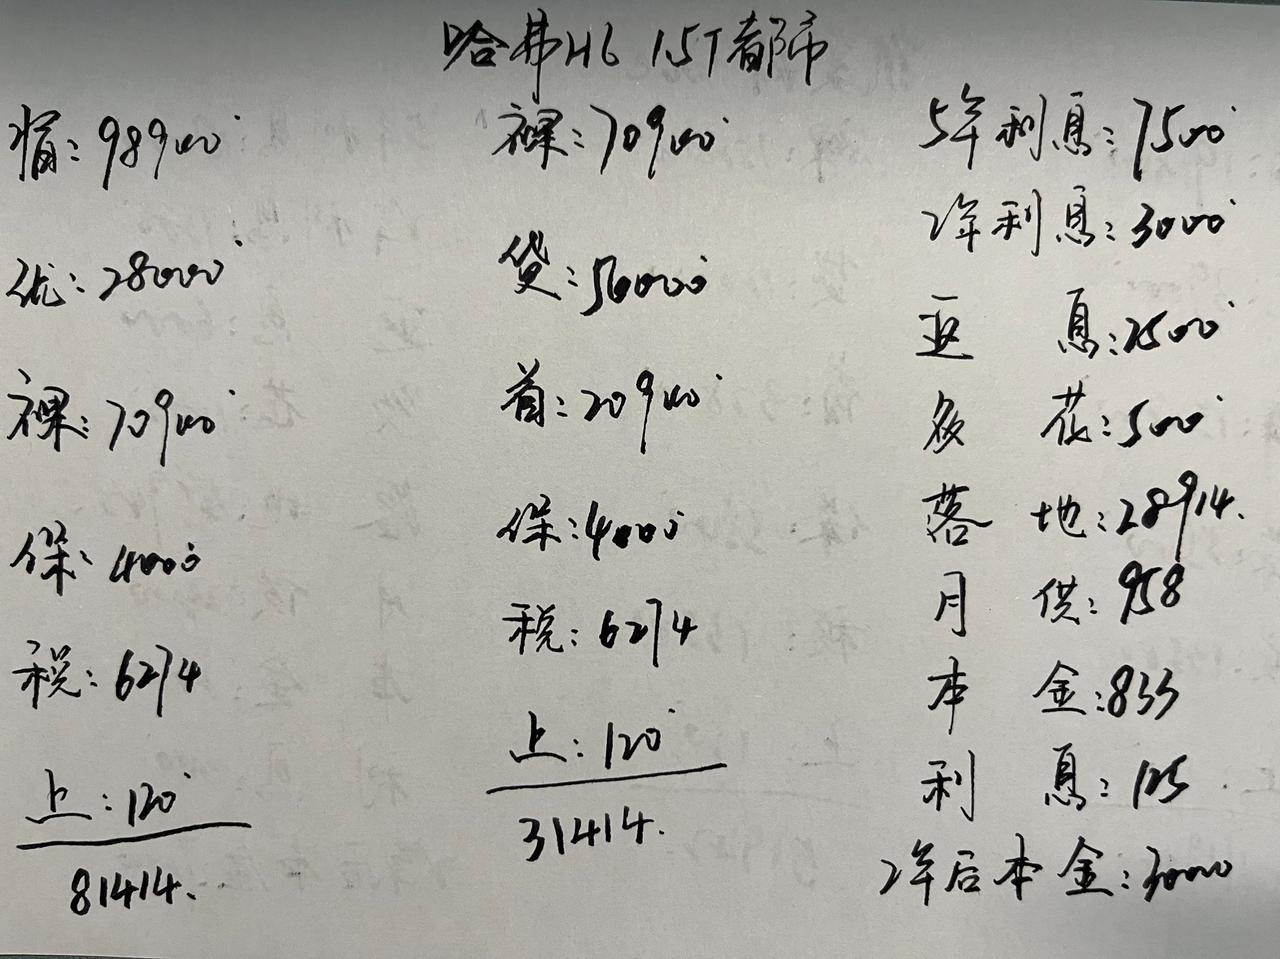 哈弗H6 1.5T都市
指:98900
优:28000
裸:70900
保:4000
税:6274
上:120
81414.
裸:70900
贷:50000
首:20900
保:4000
税:6274
上:120
31414.
5年利息:7500
2年利息:3000
息:2500
多花:500
落地:28914.
月供:958
本金:833
利息:125
2年后本金:30000